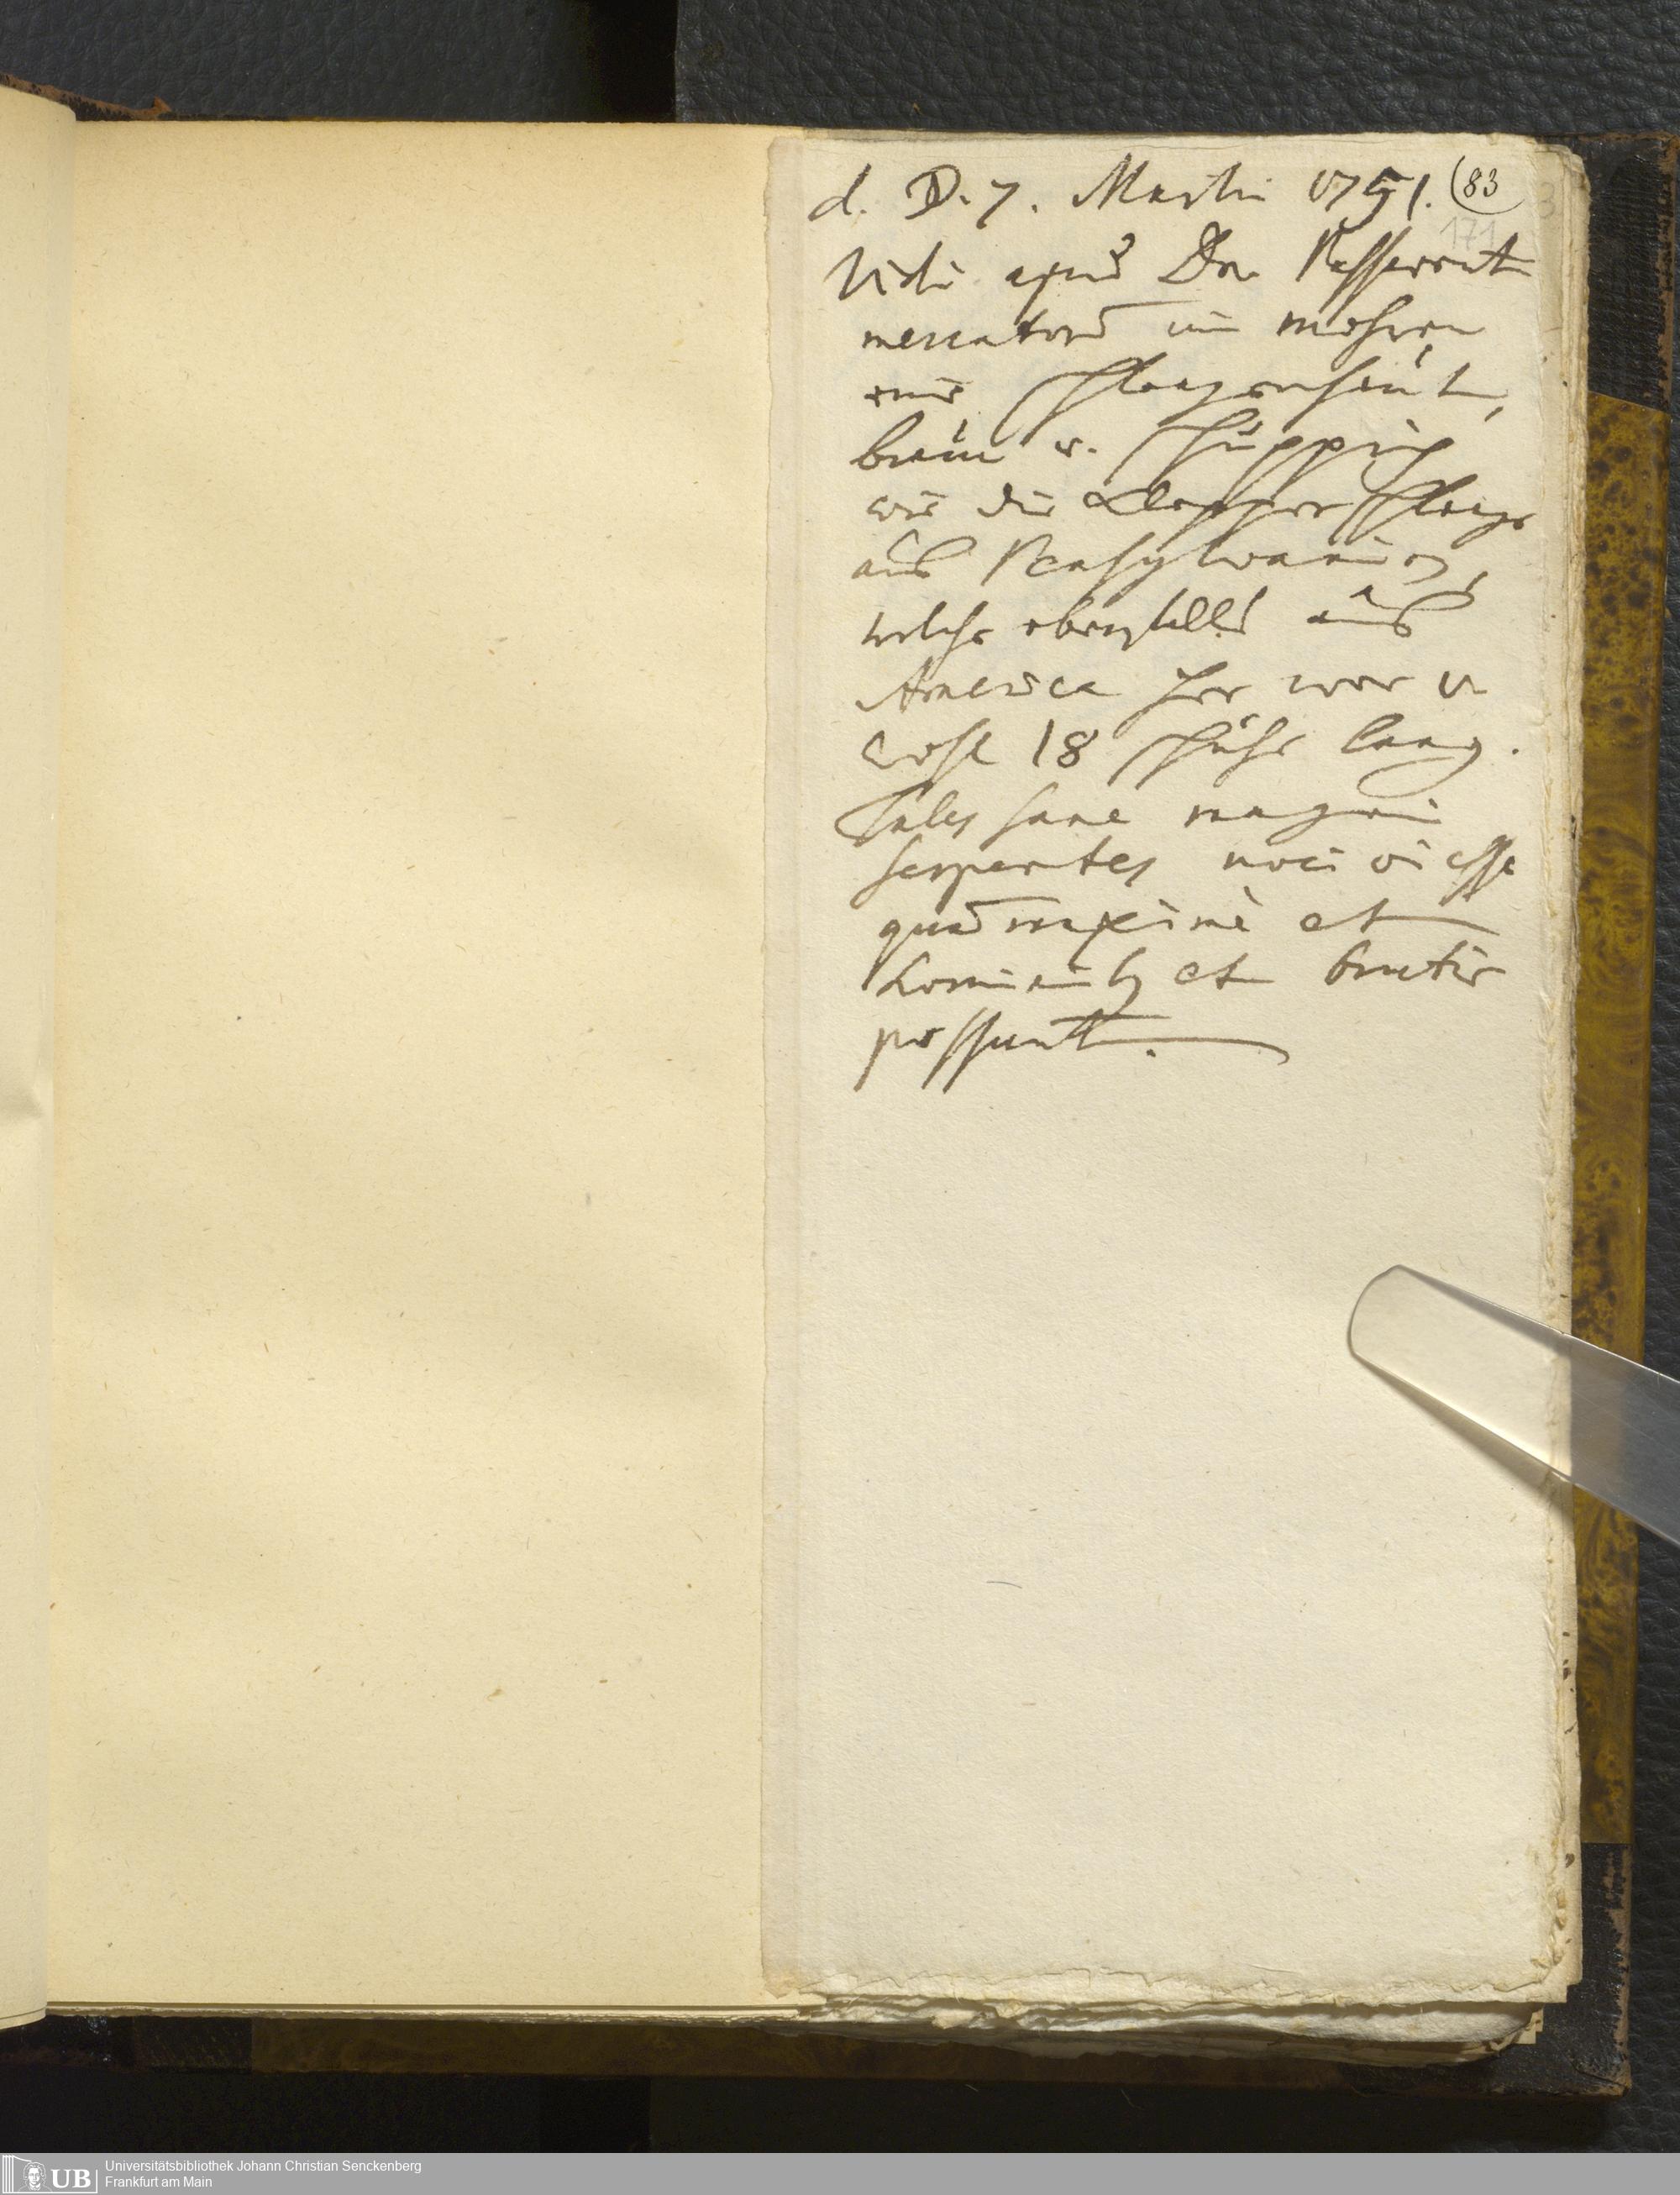 d. D. 7. Martii 1751. (83
171
Vidi apud Dn. Passavant
mercatorē im mohren
eine Schlangenhaut,
braun u. schuppig
wie die Klapperschlange
aus Pensylvanien,
welche ebenfalls aus
America her war u
wohl 18 schuhe lang.
Tales sane magni
serpentes nocivi esse
quā maxime et
hominibꝫ et brutis
possunt.
UB
Universitätsbibliothek Johann Christian Senckenberg
Frankfurt am Main